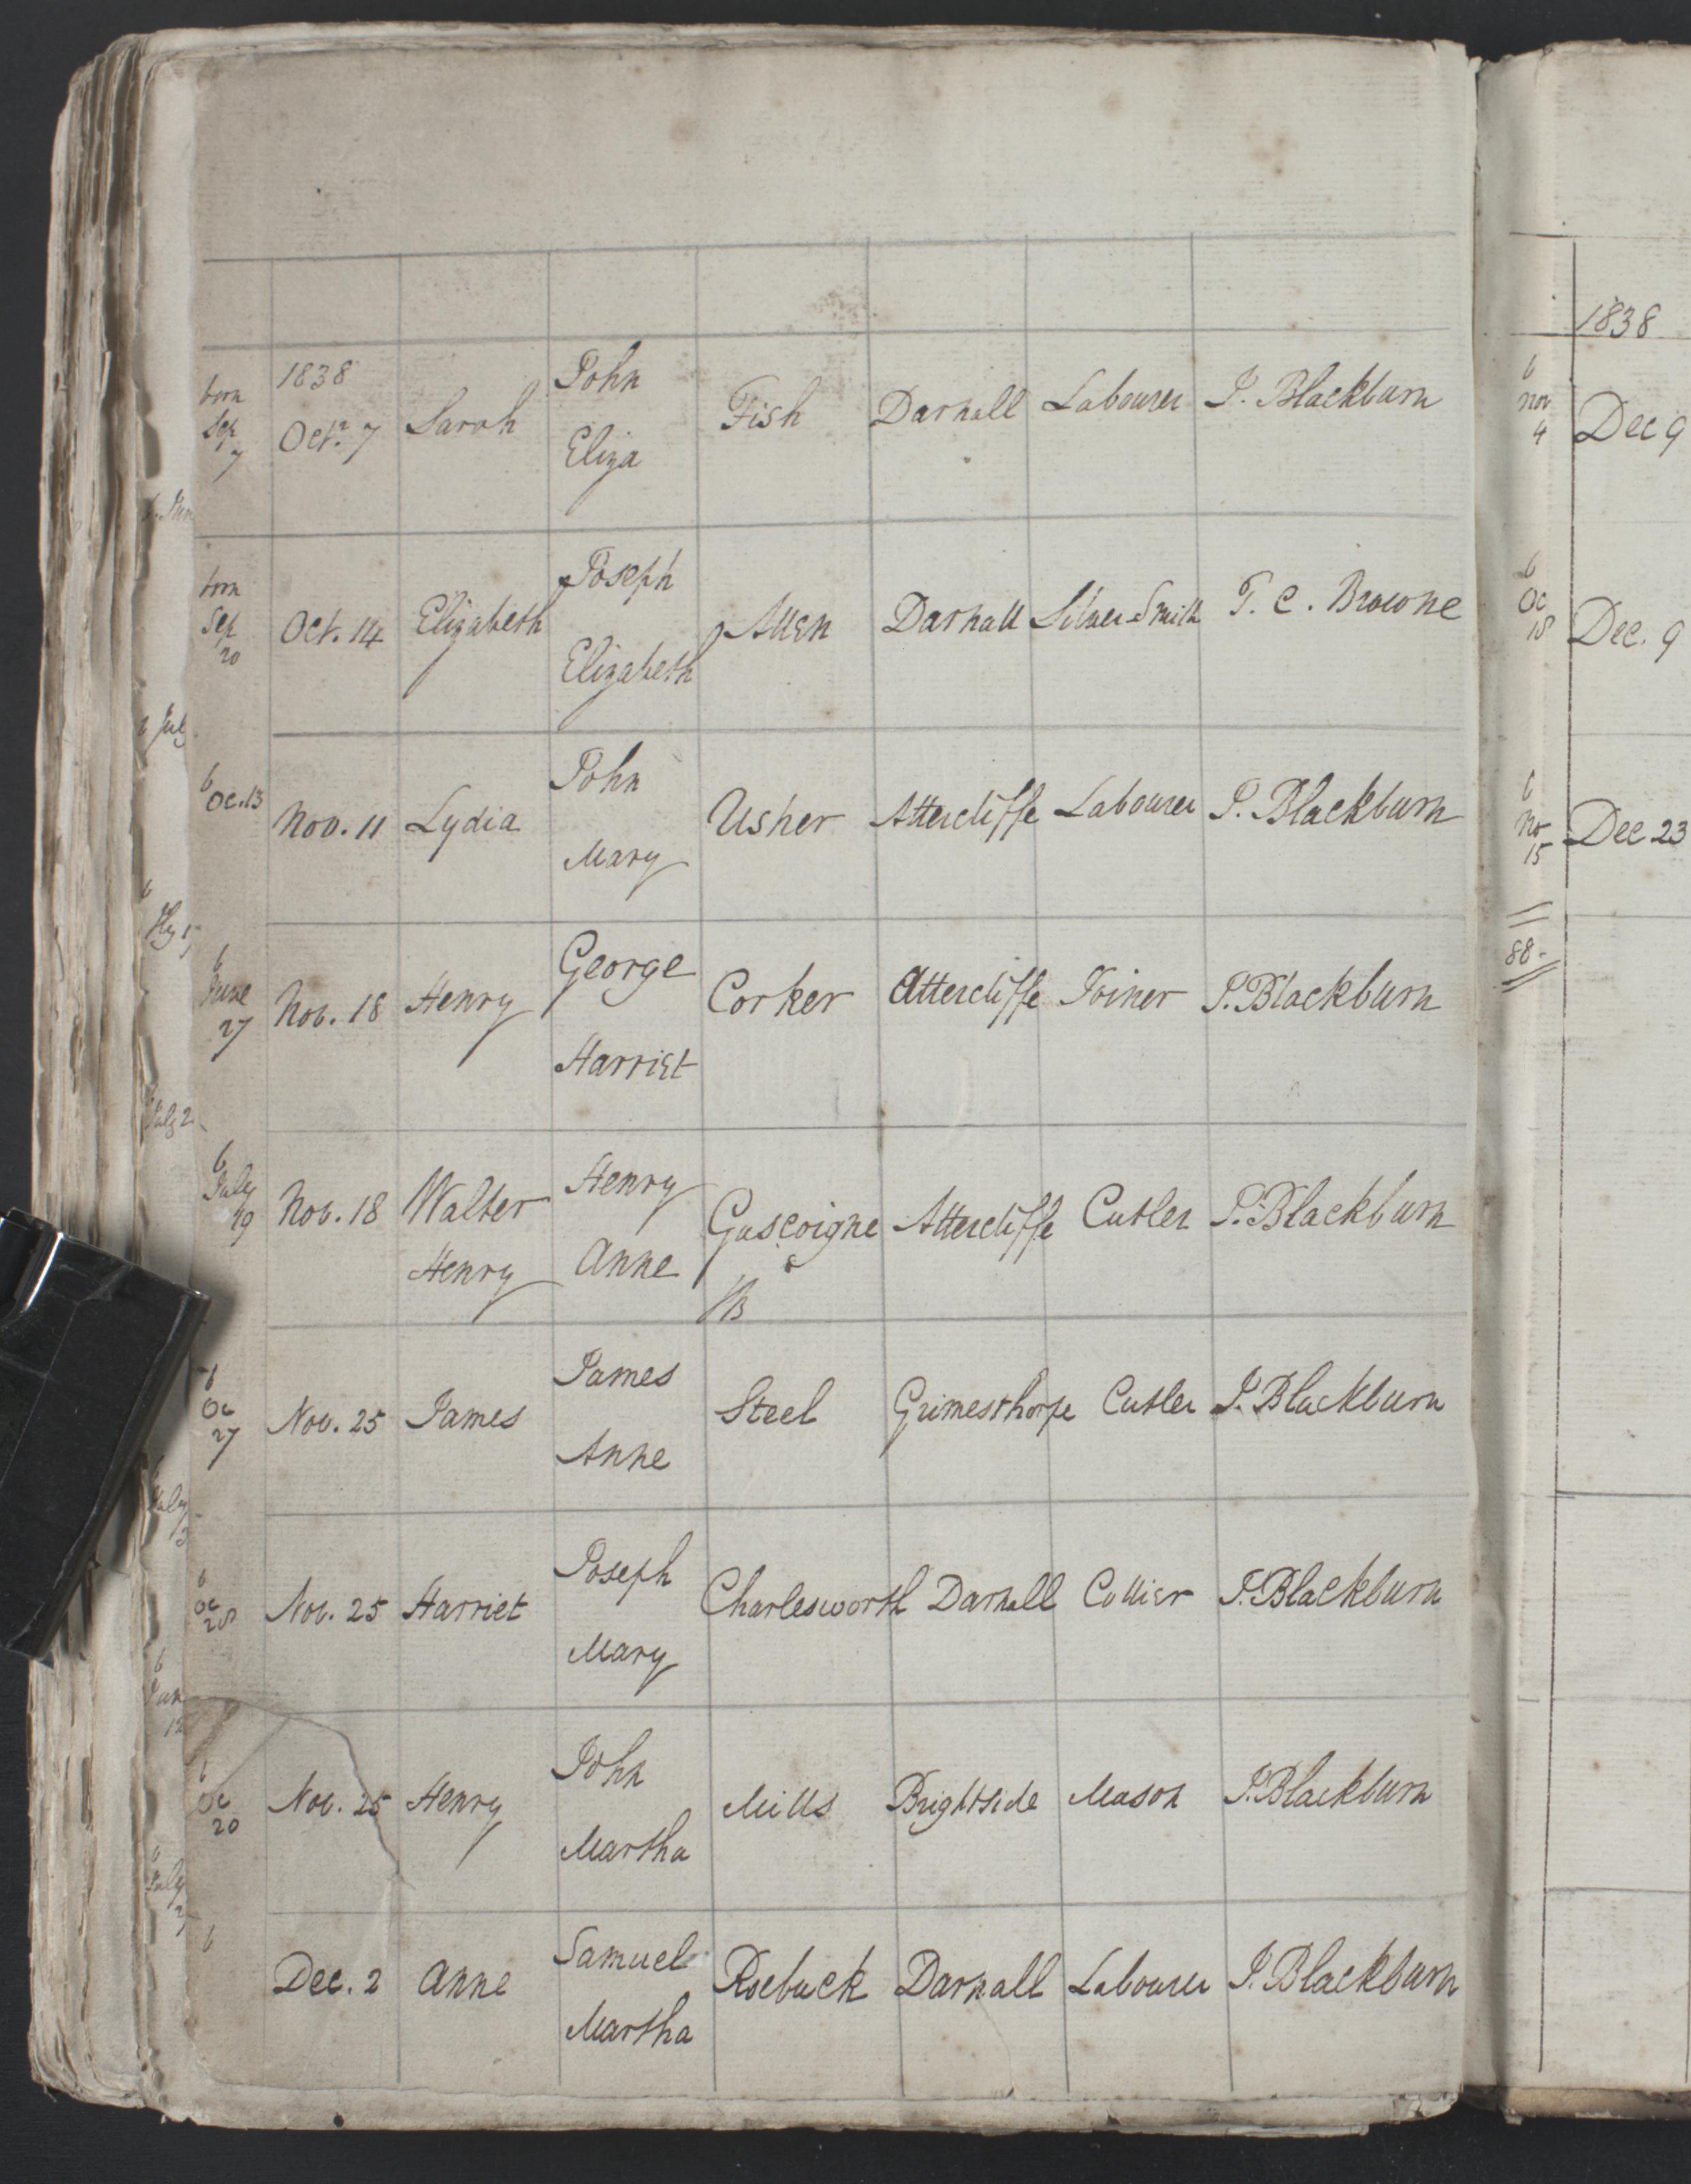 1838
born Sep 7 Octr. 7 Sarah John Eliza Fish Darnall Labourer J. Blackburn
born Sep 20 Oct. 14 Elizabeth Joseph Elizabeth Allen Darnall Silver Smith T. C. Browne
b Oc. 13 Nov. 11 Lydia John Mary Usher Attercliffe Labourer J. Blackburn
b June 27 Nov. 18 Henry George Harriet Corker Attercliffe Joiner J. Blackburn
b July 19 Nov. 18 Walter Henry Henry Anne Gascoigne Attercliffe Cutler J. Blackburn
b Oc 27 Nov. 25 James James Anne Steel Grimesthorpe Cutler J. Blackburn
b Oc 28 Nov. 25 Harriet Joseph Mary Charlesworth Darnall Collier J. Blackburn
b Oc 20 Nov. 25 Henry John Martha Mills Brightside Mason J. Blackburn
b Dec. 2 Anne Samuel Martha Roebuck Darnall Labourer J. Blackburn
1838
b Nov 4 Dec 9
b Oc 18 Dec. 9
b No 15 Dec 23
88-